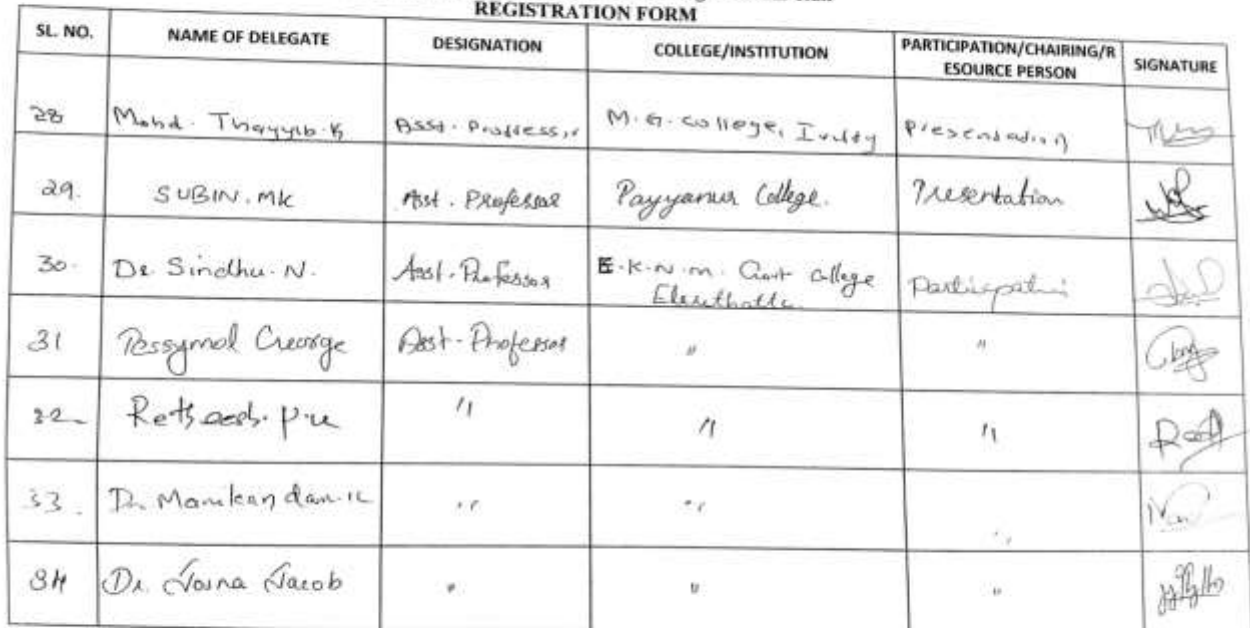 REGISTRATION FORM
SL. NO. NAME OF DELEGATE DESIGNATION COLLEGE/INSTITUTION PARTICIPATION/CHAIRING/R
ESOURCE PERSON SIGNATURE
28 Mohd. Thayyib. K Asst. Professor M. G. College, Iritty Presentation
29. SUBIN. MK Asst. Professor Payyanur College. Presentation
30. Dr. Sindhu. N. Asst. Professor E.K.N.M. Govt college
Elerithattu Participation
31 Tessymol George Asst. Professor " "
32. Ratheesh. P. " " "
33. Dr. Manikandan. K " " "
34 Dr. Josna Jacob " " "